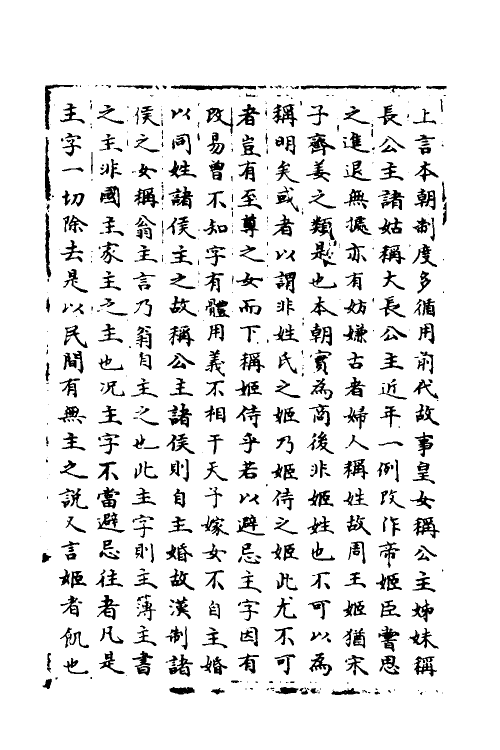 上言本朝制度多循用前代故事皇女稱公主姊妹稱
長公主諸姑稱大長公主近年一例改作帝姬臣嘗思
之進退無據亦有妨嫌古者婦人稱姓故周王姬猶宋
子齊姜之類是也本朝實為商後非姬姓也不可以為
稱明矣或者以謂非姓氏之姬乃姬侍之姬此尤不可
者豈有至尊之女而下稱姬侍乎若以避忌主字因有
改易曾不知字有體用義不相干天子嫁女不自主婚
以同姓諸侯主之故稱公主諸侯則自主婚故漢制諸
侯之女稱翁主言乃翁自主之也此主字則主薄主書
之主非國主家主之主也况主字不當避忌往者凡是
主字一切除去是以民間有無主之說又言姬者飢也